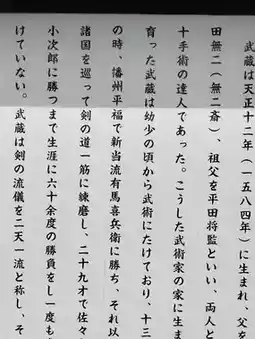 武蔵は天正十二年（一五八四年）に生まれ、父を
田無二（無二斎）、祖父を平田将監といい、両人と
十手術の達人であった。こうした武術家の家に生ま
育った武蔵は幼少の頃から武術にたけており、十三
の時、播州平福で新当流有馬喜兵衛に勝ち、それ以
諸国を巡って剣の道一筋に練磨し、二十九才で佐々
小次郎に勝つまで生涯に六十余度の勝負をし一度も
けていない。武蔵は剣の流儀を二天一流と称し、そ